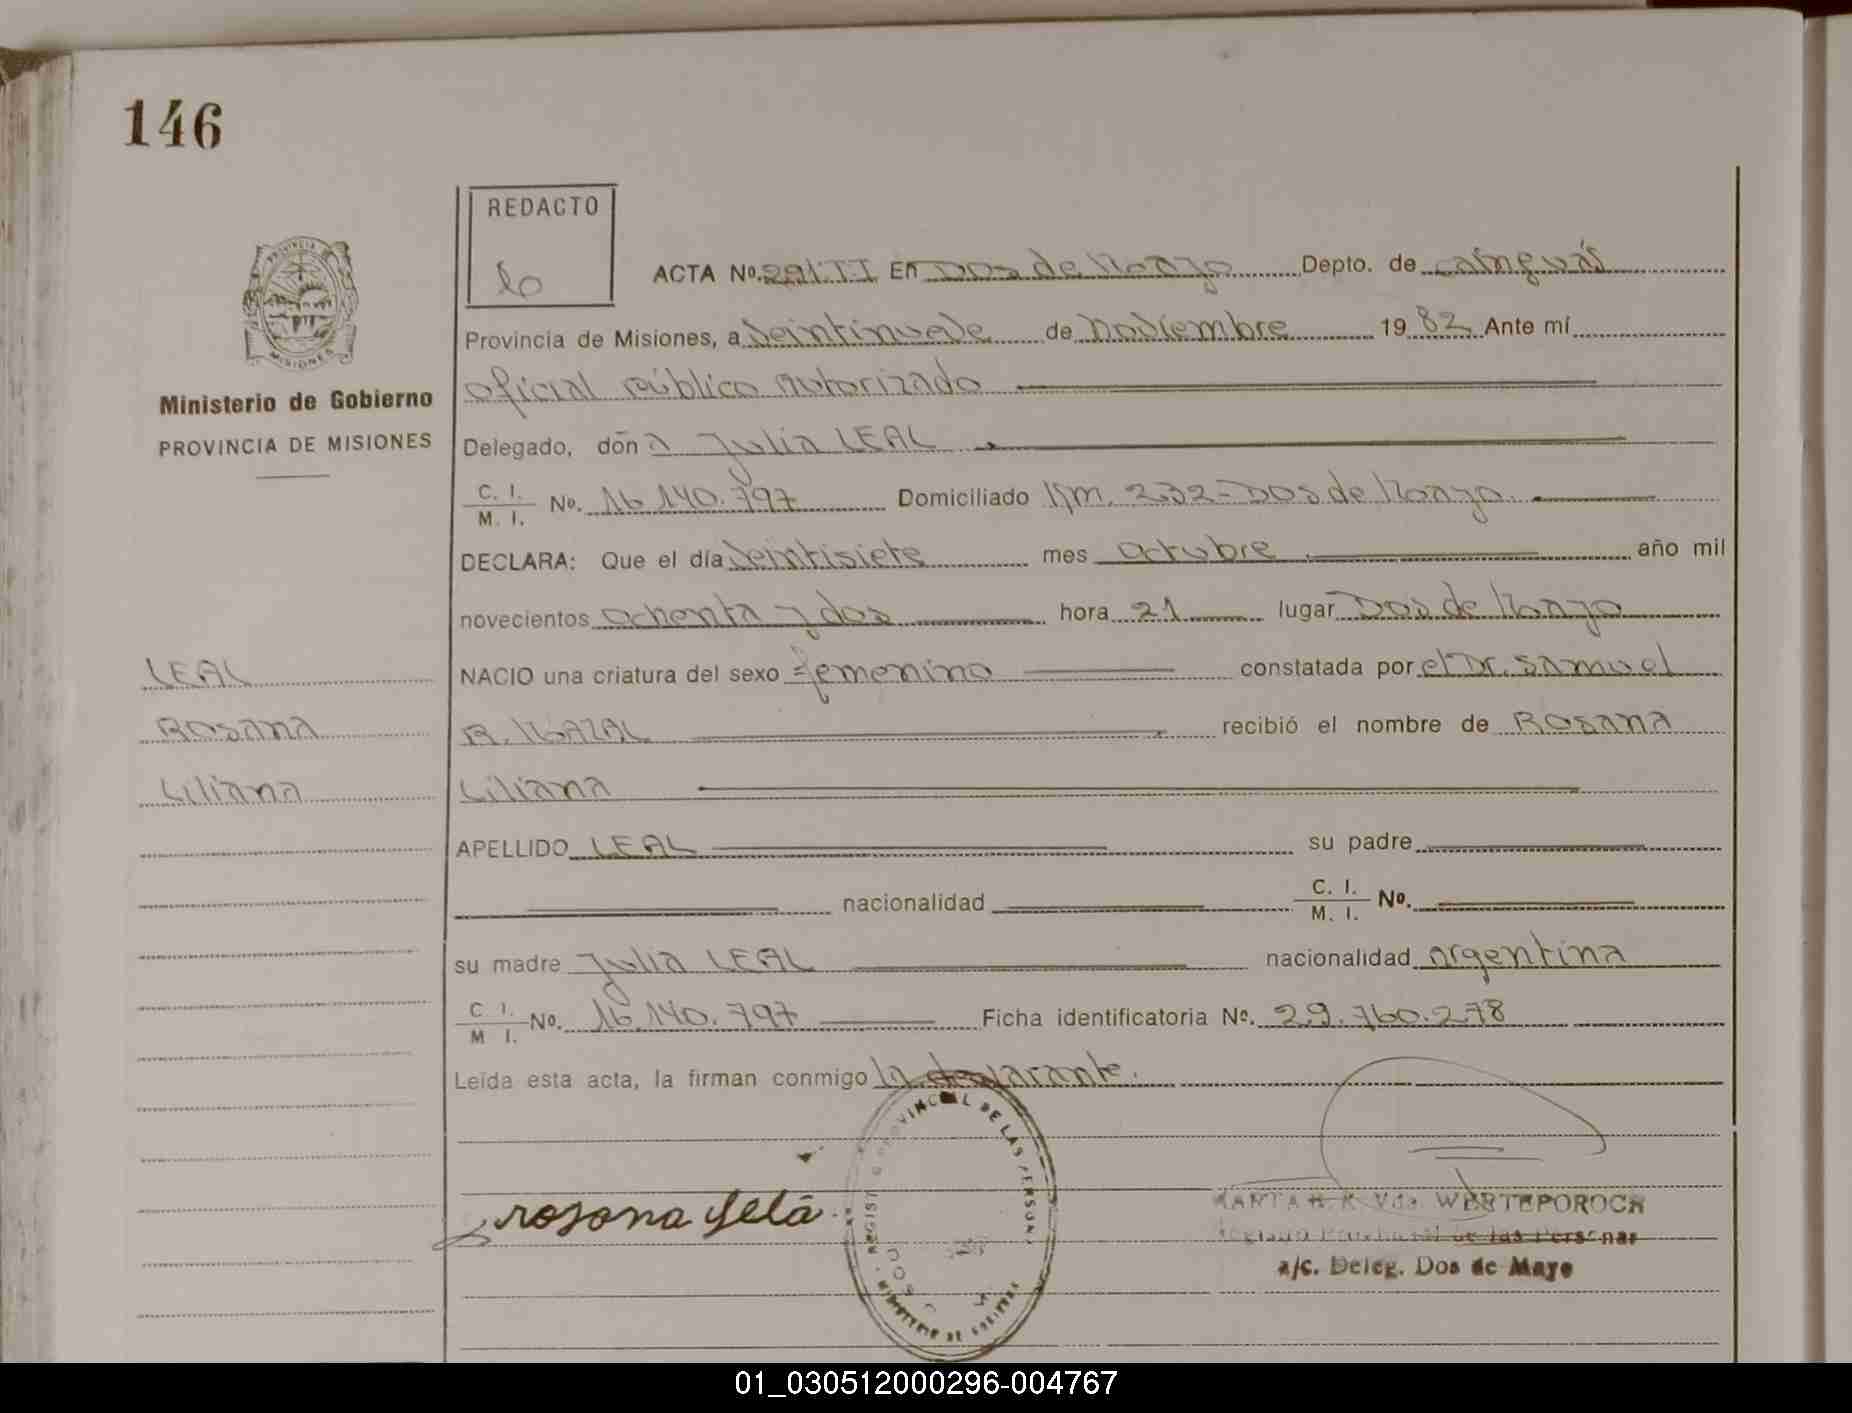 146
REDACTO
ACTA No. 291.TI En Dos de Mayo Depto. de Cainguás
Provincia de Misiones, a Veintinueve de Noviembre 1982 Ante mí
oficial público autorizado
Ministerio de Gobierno
PROVINCIA DE MISIONES
Delegado, doña Julia LEAL
C. I. M. I. No. 16.140.797 Domiciliado Km. 232-Dos de Mayo.
DECLARA: Que el día Veintisiete mes octubre año mil
novecientos ochenta y dos hora 21 lugar Dos de Mayo
LEAL NACIO una criatura del sexo femenino constatada por el Dr. Samuel
Rosana R. recibió el nombre de Rosana
Liliana Liliana
APELLIDO LEAL su padre
nacionalidad C. I. M. I. No.
su madre Julia LEAL nacionalidad argentina
C. I. M. I. No. 16.140.797 Ficha identificatoria No. 29.760.278
Leída esta acta, la firman conmigo la declarante.
a/c. Deleg. Dos de Mayo
01_030512000296-004767